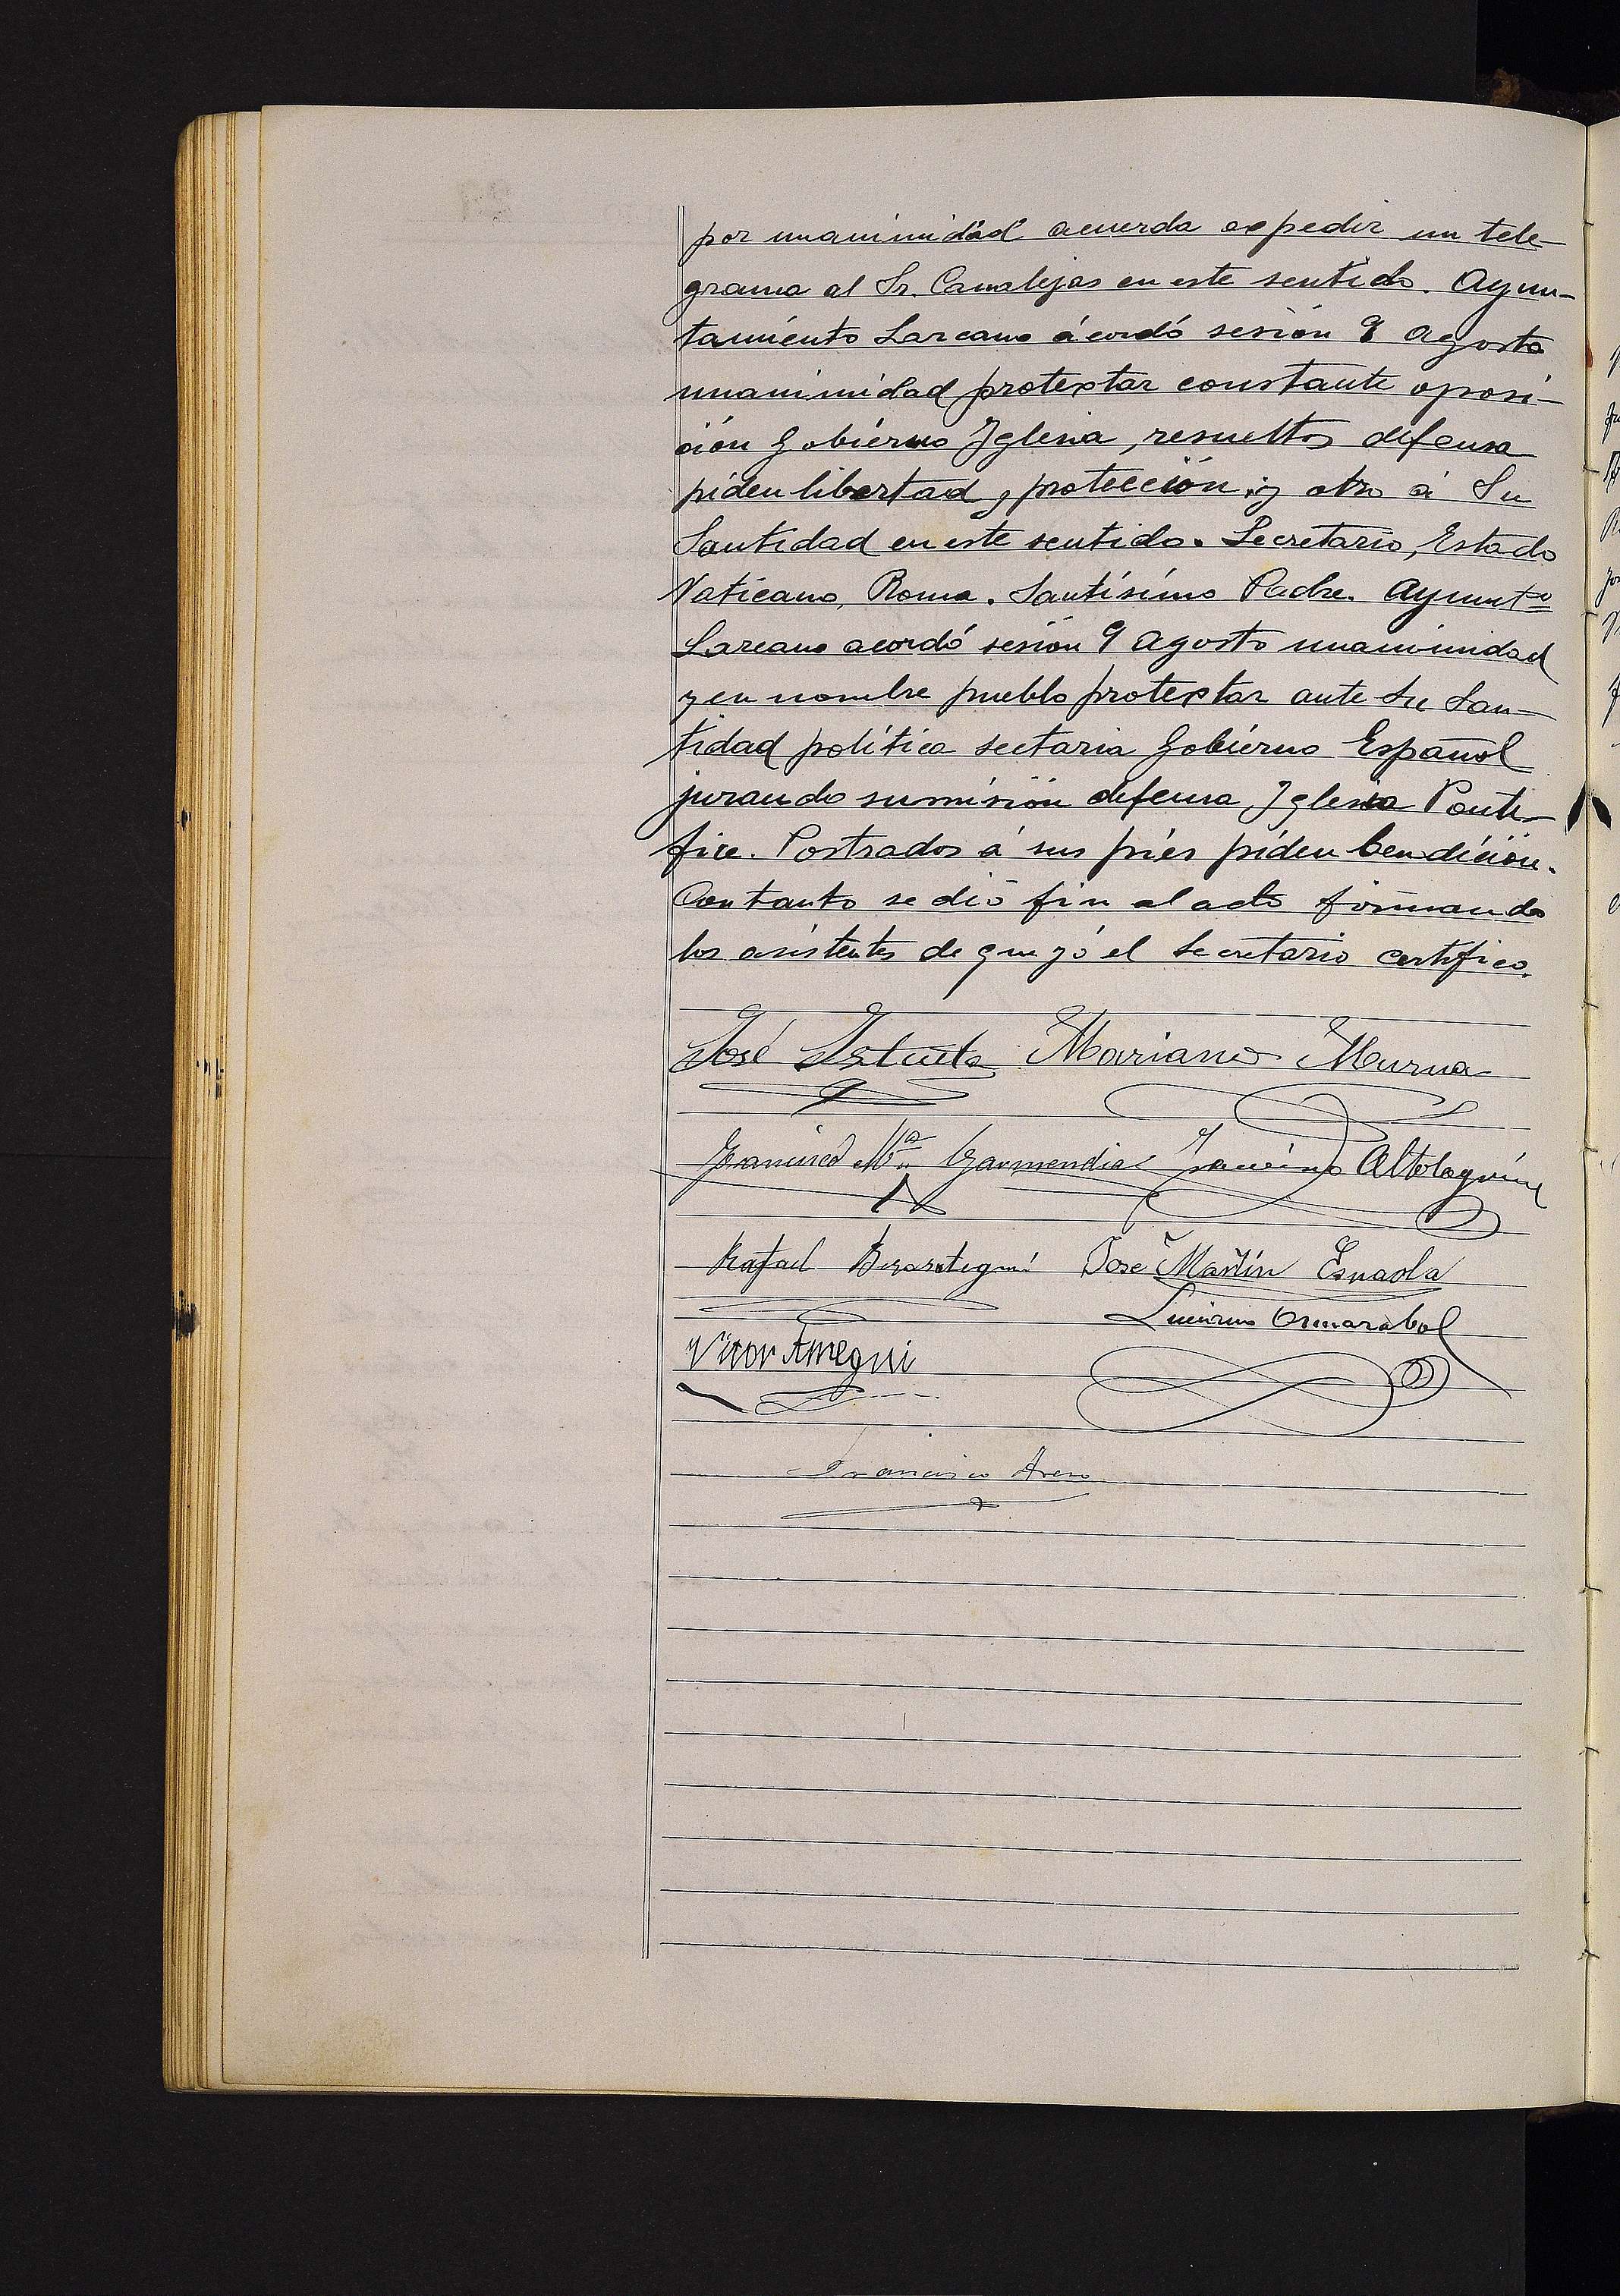 por unanimidad acuerda expedir un tele-
grama al Sr. Canalejas en este sentido. Ayun-
tamiento Lazcano ácordó sesión 9 Agosto
unanimidad protextar constante oposi-
ción Gobierno Iglesia, resueltos defensa
piden libertad y protección; y otro á Su
Santidad en este sentido. Secretario, Estado
Vaticano, Roma. Santísimo Padre. Ayuntº
Lazcano acordó sesión 9 Agosto unanimidad
y en nombre pueblo protextar ante Su San-
tidad política sectaria Gobierno Español
jurando sumisión defensa, Iglesia Pontí-
fice. Postrados á sus piés piden bendición.
Con tanto se dió fin al acto firmando
los asistentes de que yó el Secretario certifico.
José Mariano Murua
Francisco Mª Garmendia Altolaguirre
Rafael Berasategui José Martín Esnaola
Victor
Francisco